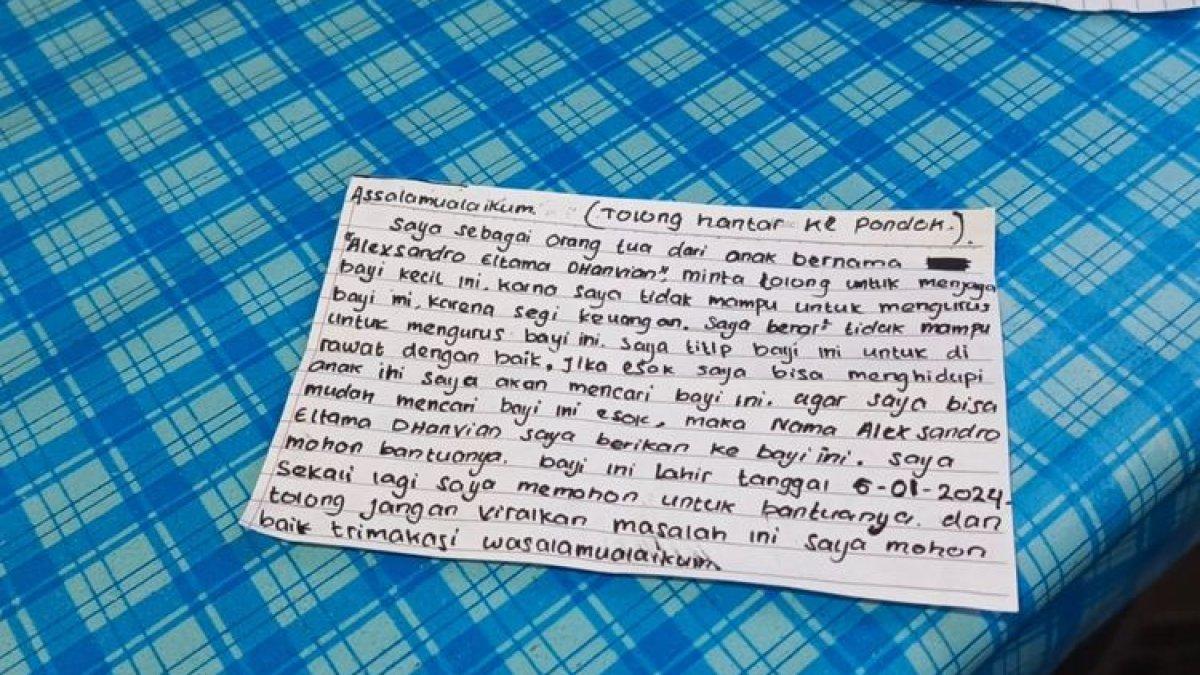 Assalamualaikum. (Tolong hantar ke Pondok.).
Saya sebagai orang tua dari anak bernama
"Alexsandro Eltama DHanvian", minta tolong untuk menjaga
bayi kecil ini. karna saya tidak mampu untuk mengurus
bayi ini, karena segi keuangan. saya berar² tidak mampu
untuk mengurus bayi ini. saya titip bayi ini untuk di
rawat dengan baik, jika esok saya bisa menghidupi
anak ini saya akan mencari bayi ini. agar saya bisa
mudah mencari bayi ini esok, maka Nama Alexsandro
Eltama DHanvian saya berikan ke bayi ini. saya
mohon bantuanya. bayi ini lahir tanggal 6-01-2024.
Sekali lagi saya memohon untuk bantuanya. dan
tolong jangan viralkan masalah ini saya mohon
baik trimakasi wasalamualaikum